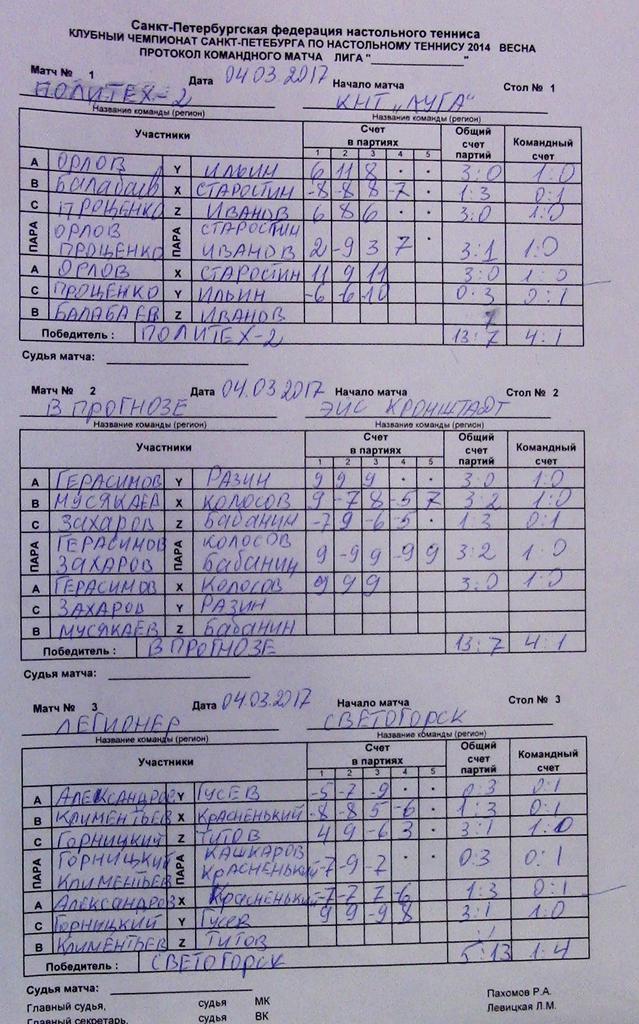 Санкт-Петербургская федерация настольного тенниса
КЛУБНЫЙ ЧЕМПИОНАТ САНКТ-ПЕТЕБУРГА ПО НАСТОЛЬНОМУ ТЕННИСУ 2014 ВЕСНА
ПРОТОКОЛ КОМАНДНОГО МАТЧА ЛИГА "____________"
Матч № 1 Дата 04.03.2017 Начало матча Стол № 1
ПОЛИТЕХ-2 КНТ „ЛУГА"
Название команды (регион) Название команды (регион)
Участники Счет в партиях Общий счет партий Командный счет
1 2 3 4 5
A ОРЛОВ Y ИЛЬИН 6 11 8 · · 3:0 1:0
B БАЛАБАЕВ X СТАРОСТИН -8 -8 8 -7 · 1:3 0:1
C ПРОЦЕНКО Z ИВАНОВ 6 8 6 · · 3:0 1:0
ПАРА ОРЛОВ ПАРА СТАРОСТИН
ПРОЦЕНКО ИВАНОВ 2 -9 3 7 · 3:1 1:0
A ОРЛОВ X СТАРОСТИН 11 9 11 3:0 1:0
C ПРОЦЕНКО Y ИЛЬИН -6 -6 -10 0:3 0:1
B БАЛАБАЕВ Z ИВАНОВ
Победитель : ПОЛИТЕХ-2 13:7 4:1
Судья матча:
Матч № 2 Дата 04.03.2017 Начало матча Стол № 2
В ПРОГНОЗЕ ЭЙС КРОНШТАДТ
Название команды (регион) Название команды (регион)
Участники Счет в партиях Общий счет партий Командный счет
1 2 3 4 5
A ГЕРАСИМОВ Y РАЗИН 9 9 9 · · 3:0 1:0
B МУСЯКАЕВ X КОЛОСОВ 9 -7 8 -5 7 3:2 1:0
C ЗАХАРОВ Z Бабанин -7 9 -6 -5 · 1:3 0:1
ПАРА ГЕРАСИМОВ ПАРА КОЛОСОВ
ЗАХАРОВ Бабанин 9 -9 9 -9 9 3:2 1:0
A ГЕРАСИМОВ X КОЛОСОВ 9 9 9 3:0 1:0
C ЗАХАРОВ Y РАЗИН
B МУСЯКАЕВ Z Бабанин
Победитель : В ПРОГНОЗЕ 13:7 4:1
Судья матча:
Матч № 3 Дата 04.03.2017 Начало матча Стол № 3
ЛЕГИОНЕР СВЕТОГОРСК
Название команды (регион) Название команды (регион)
Участники Счет в партиях Общий счет партий Командный счет
1 2 3 4 5
A АЛЕКСАНДРОВ Y ГУСЕВ -5 -7 -9 · · 0:3 0:1
B КЛИМЕНТЬЕВ X КРАСНЕНЬКИЙ -8 -8 5 -6 · 1:3 0:1
C ГОРНИЦКИЙ Z ТИТОВ 4 9 -6 3 · 3:1 1:0
ПАРА ГОРНИЦКИЙ ПАРА КАШКАРОВ
КЛИМЕНТЬЕВ КРАСНЕНЬКИЙ -7 -9 -7 · · 0:3 0:1
A АЛЕКСАНДРОВ X КРАСНЕНЬКИЙ -7 -7 7 -6 1:3 0:1
C ГОРНИЦКИЙ Y ГУСЕВ 9 9 -9 8 3:1 1:0
B КЛИМЕНТЬЕВ Z ТИТОВ
Победитель : СВЕТОГОРСК 5:13 1:4
Судья матча:
Главный судья, судья МК Пахомов Р.А.
Главный секретарь, судья ВК Левицкая Л.М.